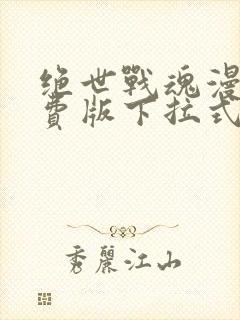 绝世戰魂漫
費版下拉式
秀麗江山